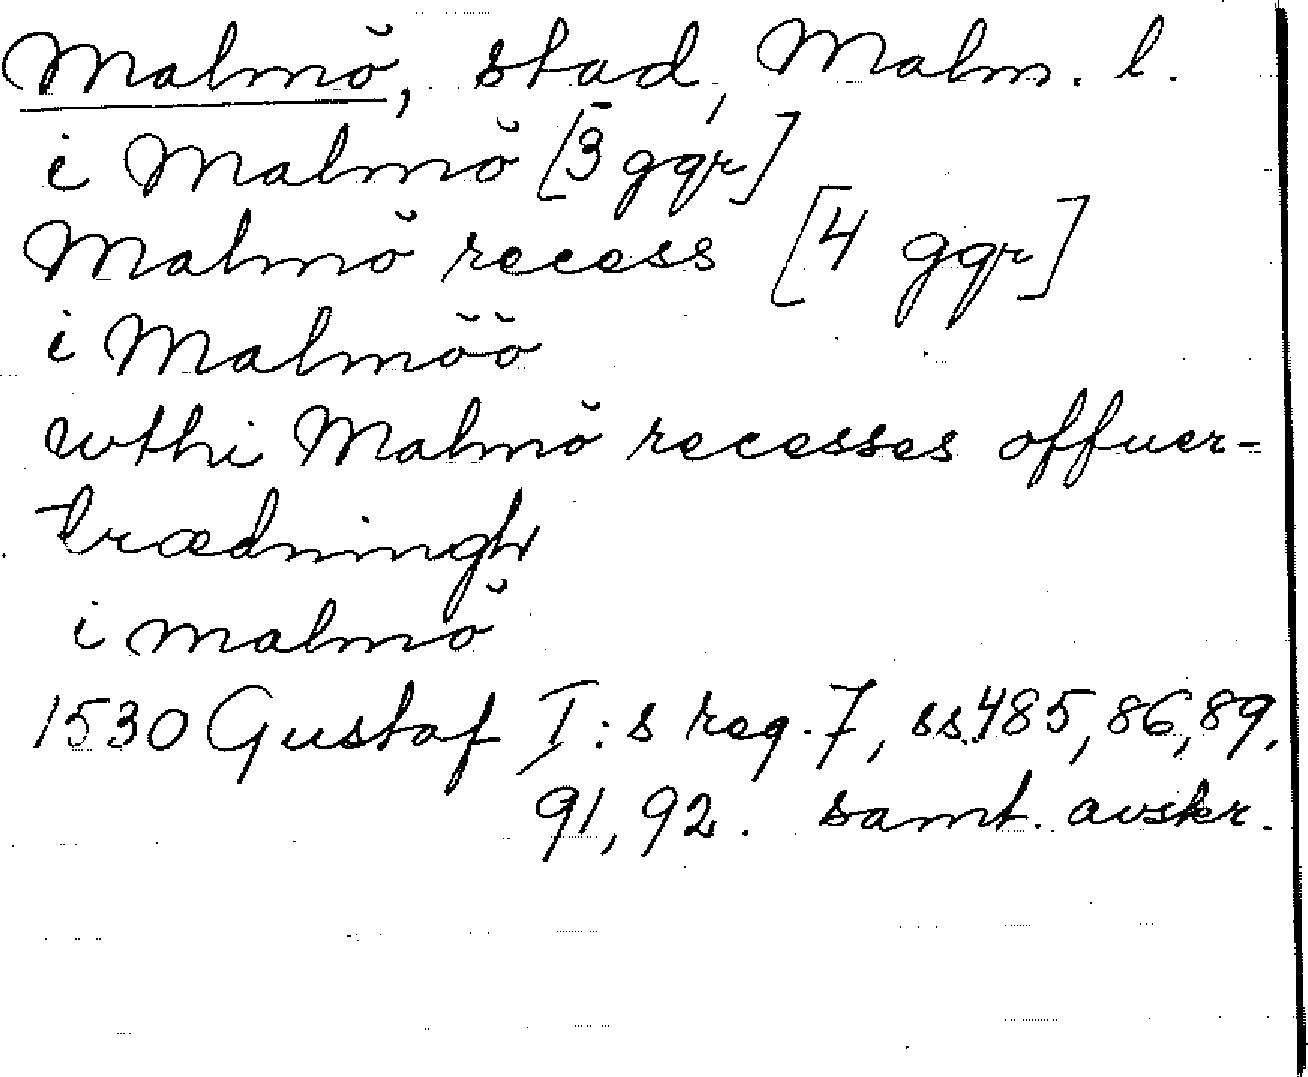 Malmö, stad, Malm. l.
i Malmö [3 ggr]
Malmö recess [4 ggr]
i Malmöö
wthi Malmö recesses offuer-
trædningh
i malmö
1530 Gustaf I:s reg. 7, ss. 485, 86, 89,
91, 92. samt. avskr.